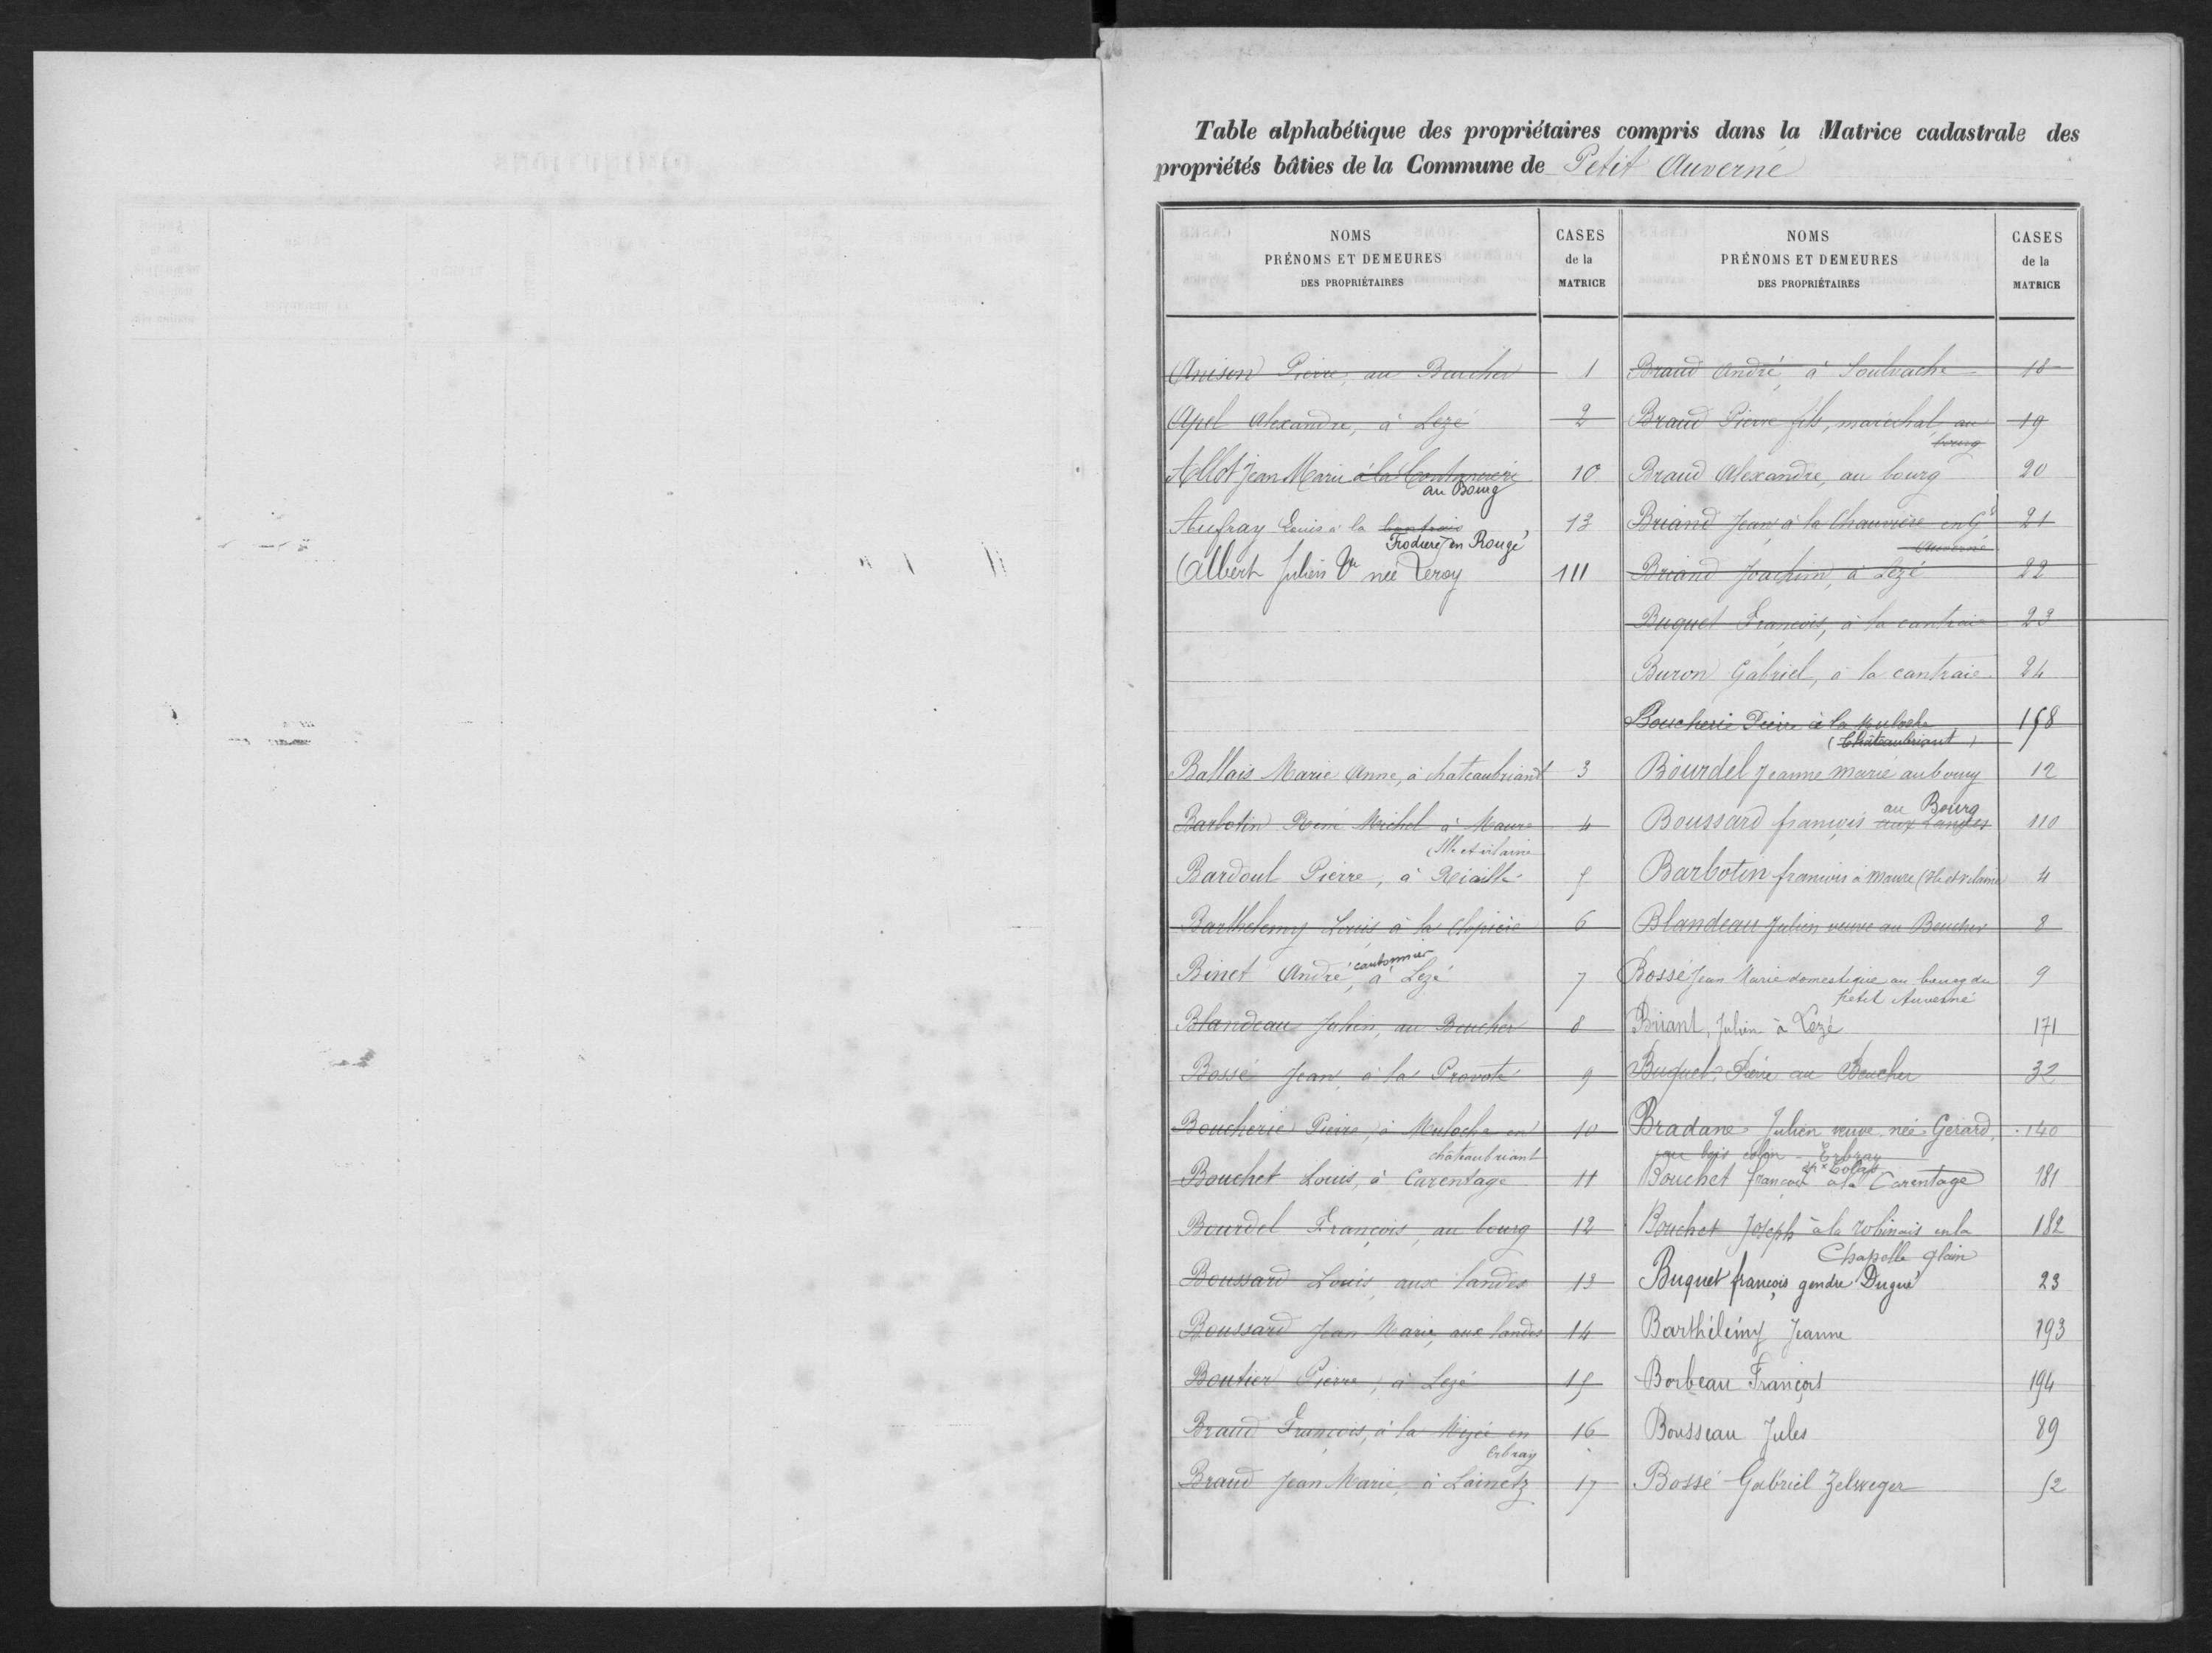 Table alphabétique des propriétaires compris dans la Matrice cadastrale des
propriétés bâties de la Commune de Petit Auverné
NOMS
PRÉNOMS ET DEMEURES
DES PROPRIÉTAIRES
CASES
de la
MATRICE
Anison Pierre, au Beucher 1
Apel Alexandre, à Lezé 2
Allot Jean Marie à la 10
au Bourg
Aufray Louis à la 13
en Rougé
Albert Julien Ve née Leroy 111
Ballais Marie Anne, à chateaubriand 3
Barbotin René Michel à Maure 4
(Ille et vilaine
Bardoul Pierre, à Riaillé 5
Barthelemy Louis, à la Clopière 6
Binet André, cantonnier à Lezé 7
Blandeau Julien, au Beucher 8
Bossé Jean, à la Provoté 9
Boucherie Pierre, à Muloche en 10
châteaubriant
Bouchet Louis, à Carentage 11
Bourdel François, au bourg 12
Boussard Louis, aux landes 13
Boussard Jean Marie, aux landes 14
Boutier Pierre, à Lezé 15
Braud François, à la en 16
Erbray
Braud Jean Marie, à Lainetz 17
NOMS
PRÉNOMS ET DEMEURES
DES PROPRIÉTAIRES
CASES
de la
MATRICE
Braud André, à Soulvache 18
Braud Pierre fils, maréchal au 19
bourg
Braud Alexandre, au bourg 20
Briand Jean, à la Chauvière en Gd 21
Auverné
Briand Joachim, à Lezé 22
Buquet François, à la cantraie 23
Buron Gabriel, à la cantraie 24
Boucherie Pierre à la Muloche 158
(Châteaubriant)
Bourdel Jeanne marie au bourg 12
au Bourg
Boussard françois aux Landes 110
Barbotin francois à maure (Ille et vilaine 4
Blandeau Julien veuve au Beucher 8
Bossé Jean Marie domestique au bourg du 9
petit Auverné
Briant, Julien à Lezé 171
Buquet, Pierre au Beucher 32
Bradane Julien veuve née Gerard 140
au bois - Erbray
Bouchet francois à la Carentage 181
Bouchet Joseph à la Robinais en la 182
Chapelle glain
Buquet françois gendre Dugué 23
Barthélémy Jeanne 193
Borbeau François 194
Bousseau Jules 89
Bossé Gabriel Zelweger 52